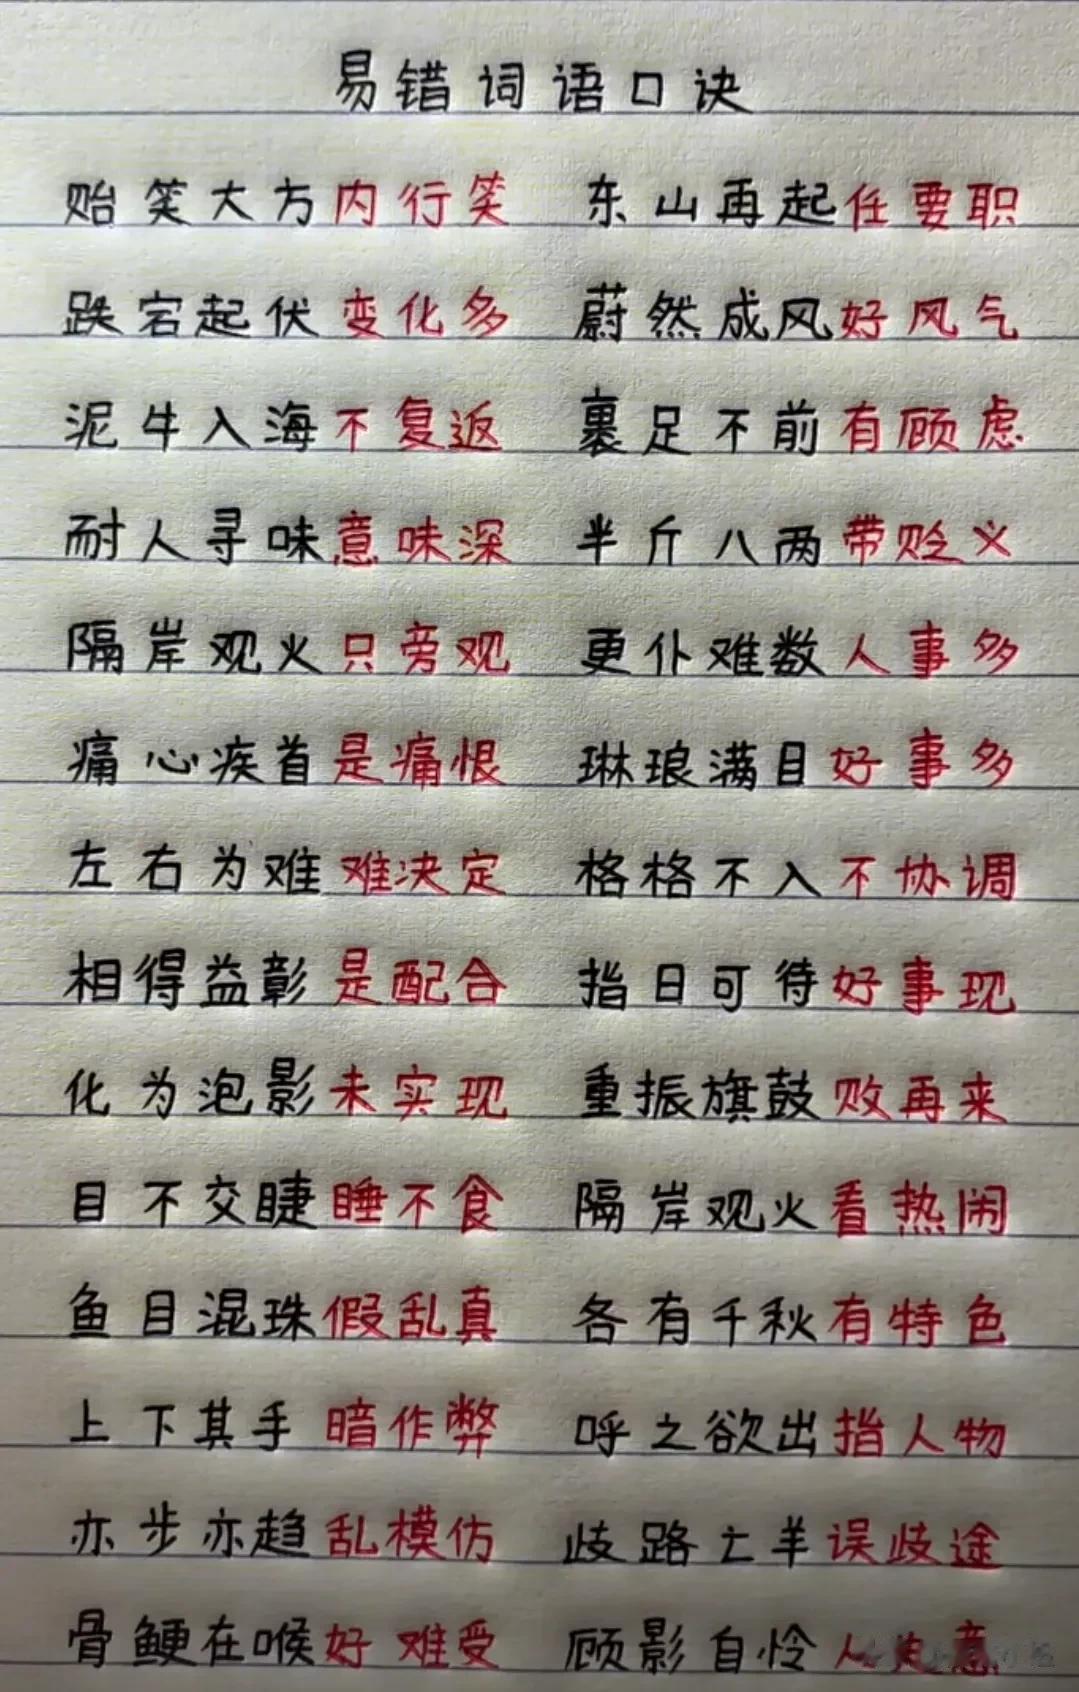 易错词语口诀
贻笑大方内行笑 东山再起任要职
跌宕起伏变化多 蔚然成风好风气
泥牛入海不复返 裹足不前有顾虑
耐人寻味意味深 半斤八两带贬义
隔岸观火只旁观 更仆难数人事多
痛心疾首是痛恨 琳琅满目好事多
左右为难难决定 格格不入不协调
相得益彰是配合 指日可待好事现
化为泡影未实现 重振旗鼓败再来
目不交睫睡不食 隔岸观火看热闹
鱼目混珠假乱真 各有千秋有特色
上下其手暗作弊 呼之欲出指人物
亦步亦趋乱模仿 歧路亡羊误歧途
骨鲠在喉好难受 顾影自怜人失意